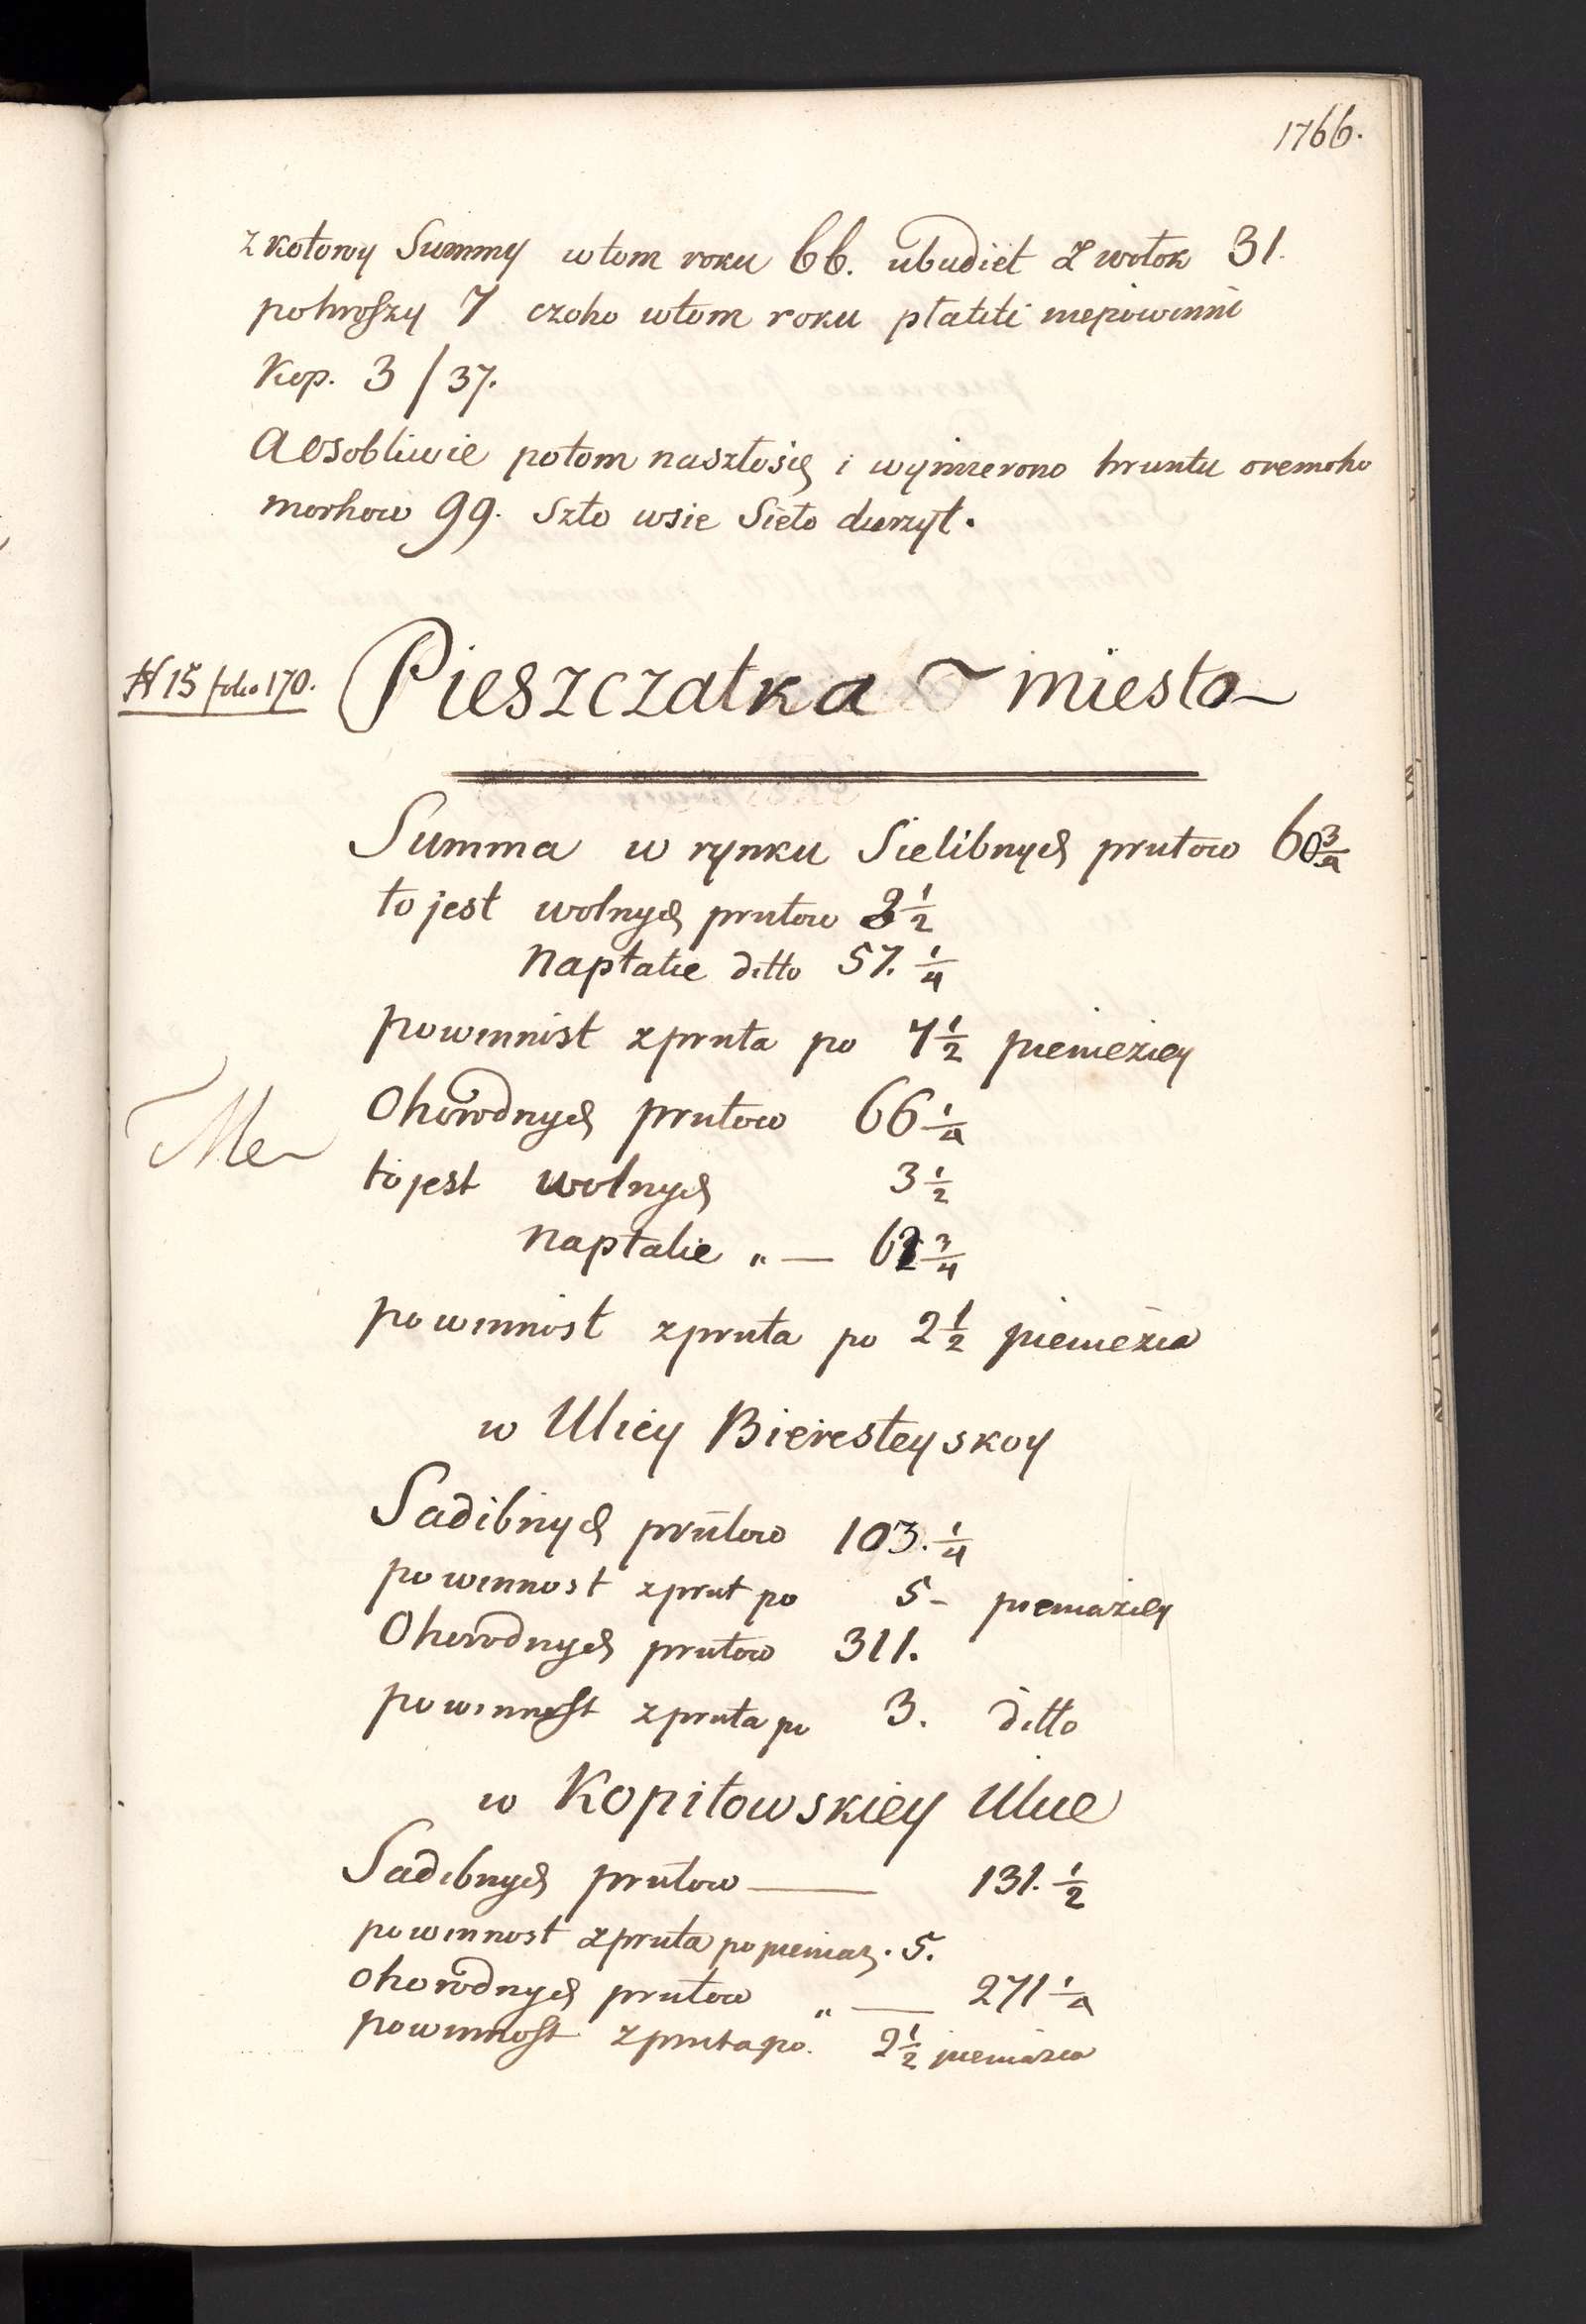 1766.
z kotoroy Summy wtom roku 66. ubudiet z wołok 31.
pohroszy 7 czoho wtom roku płatiti niepowinni
Kop. 3/37.
A osobliwie potom naszłosię i wymierono hruntu oremoho
morhow 99. Szto wsie Sieło durzyt.
N 15 folio 170. Pieszczatka ~ miesto
Summa w rynku Sielibnych prutow 60 3/4
to jest wolnych prutow 3 1/2
napłatie ditto 57. 1/4
powinnist zpruta po 7 1/2 pienieziey
Ohorodnych prutow 66 1/4
to jest wolnych 3 1/2
napłatie „ — 62 3/4
powinnost zpruta po 2 1/2 pieniezia
w Ulicy Bieresteyskoy
Sadibnych prutow 103. 1/4
powinnost zprut po 5 - pieniaziey
Ohorodnych prutow 311.
powinnost zpruta po 3. ditto
w Kopitowskiey Ulice
Sadibnych prutow — 131. 1/2
powinnost zpruta po pieniaz. 5.
ohorodnych prutow „ — 271 1/4
powinnost zpruta po. 2 1/2 pieniazia